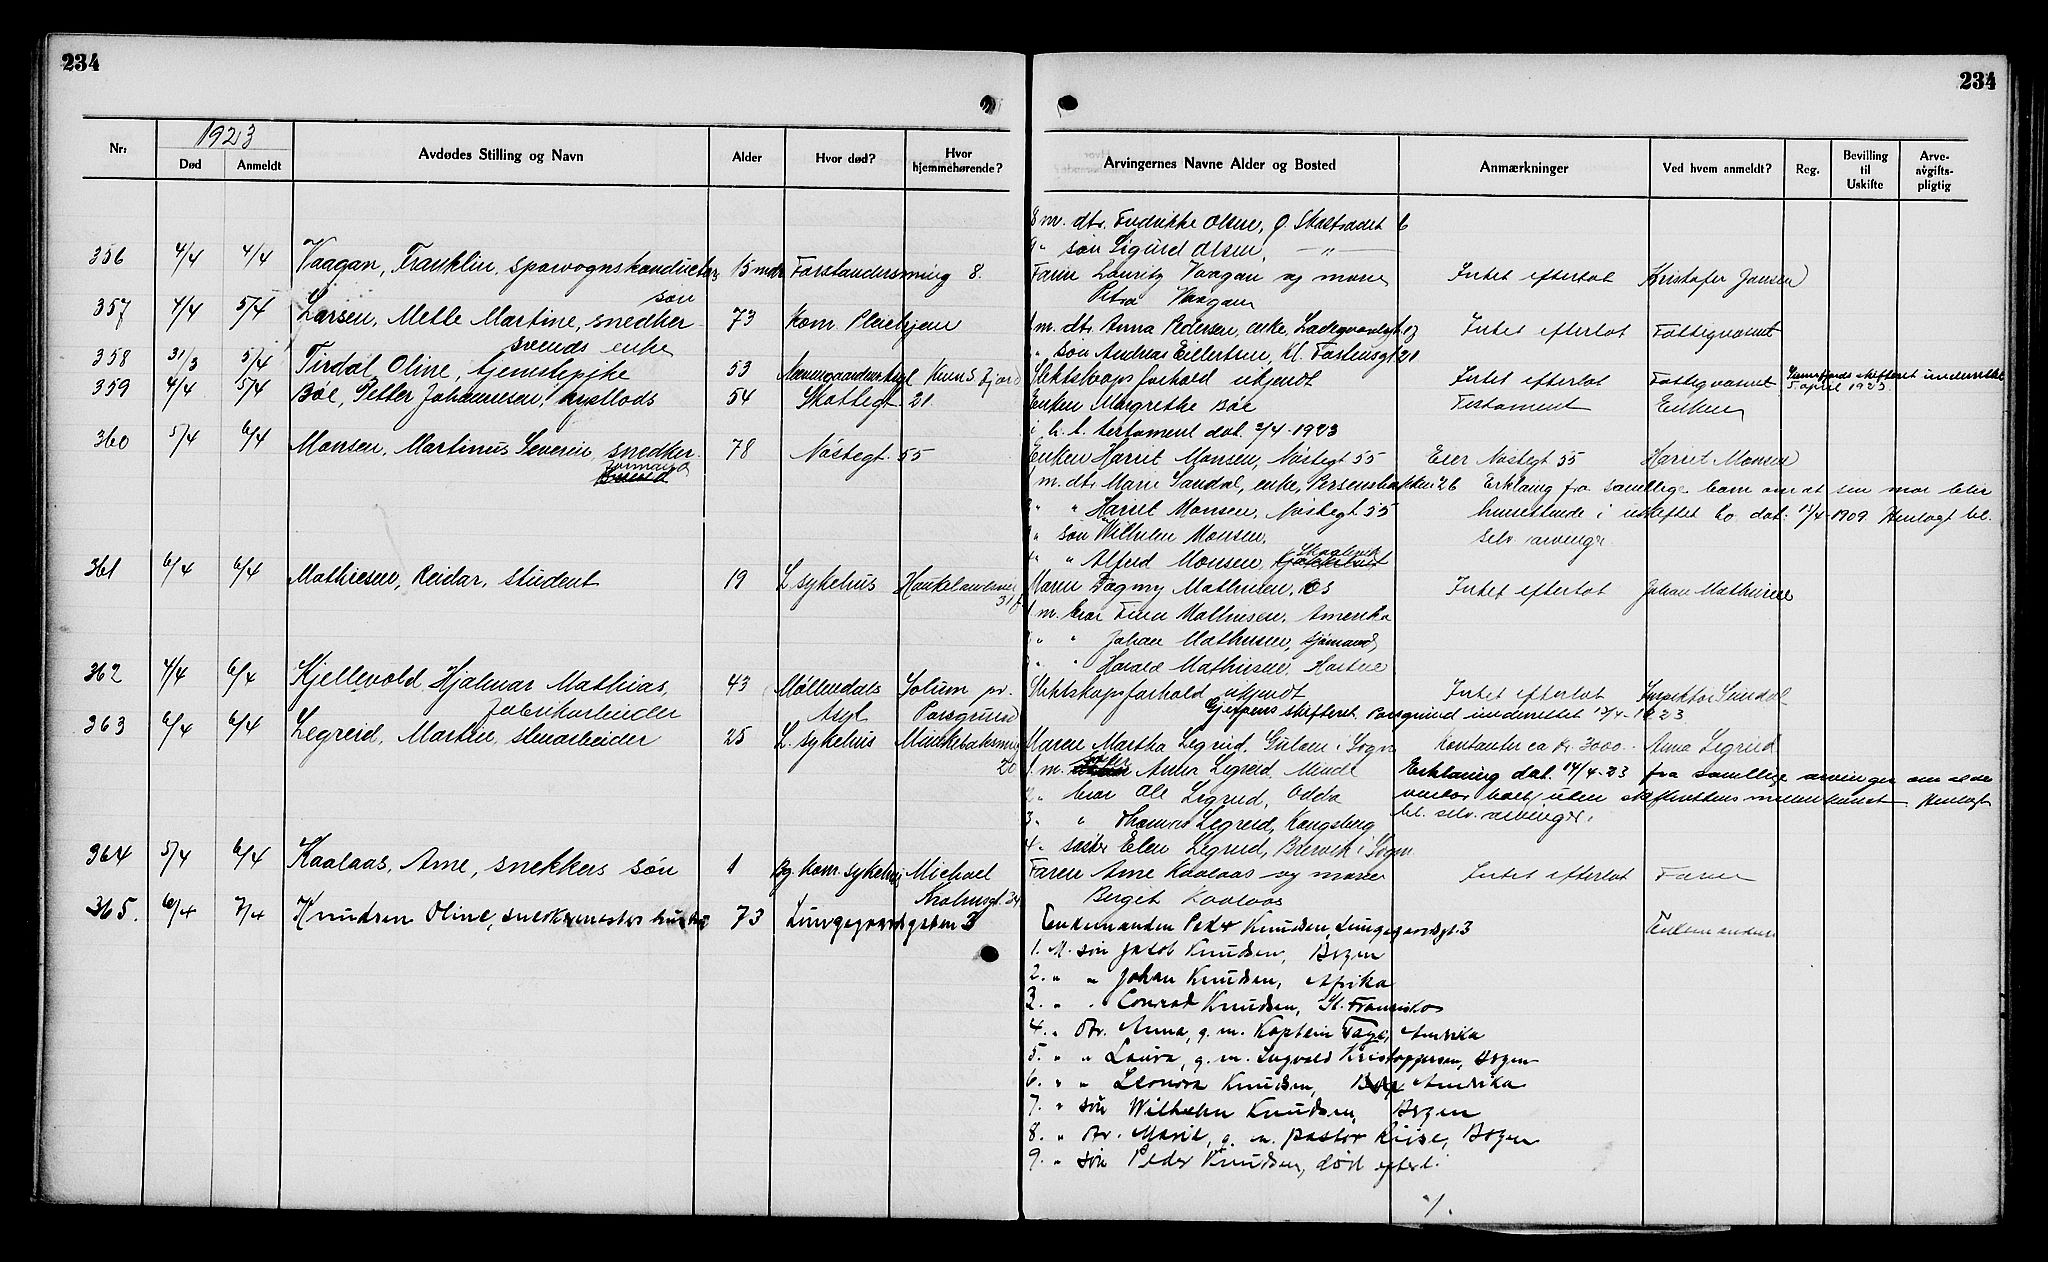 234
234
Nr:
1923
Død
Anmeldt
Avdødes Stilling og Navn
Alder
Hvor død?
Hvor hjemmehørende?
Arvingernes Navne Alder og Bosted
Anmærkninger
Ved hvem anmeldt?
Reg.
Bevilling til Uskifte
Arveavgiftspligtig
8 m. dtr. Fredrikke Olsen, Ø. Skostrædet 6
9 " søn Sigurd Olsen, — " —
356 4/4 4/4 Vaagan, Franklin, sporvognskonduktørs 15 mdr Forstandersmug 8. Faren Lauritz Vaagan og moren Intet efterlot Kristofer Jansen
søn Petra Vaagan
357 4/4 5/4 Larsen, Mette Martine, snedker- 73 Kom. Pleiehjem 1 m. dtr. Anna Pedersen, enke, Ladegaardsgt 17 Intet efterlot Fattigvæsenet
svends enke " søn Andreas Eilertsen, Kl. Fosthusgt 21
358 31/3 5/4 Tirdal, Oline, tjenestepike 53 Slektskapsforhold ukjendt Intet efterlot Fattigvæsenet
april 1923
359 4/4 5/4 Bøe, Petter Johannesen, 54 Skottegt 21 Enken Margrethe Bøe Testament Enken
i h. t. testament dat. 2/4-1923
360 5/4 6/4 Monsen, Martinus Severin, snedker 78 Nøstegt. 55 Enken Harriet Monsen, Nøstegt 55 Eier Nøstegt 55 Harriet Monsen
formand 1 m. dtr. Marie Sandal, enke, 26 Erklæring fra samtlige barn om at sin mor blir
2 " " Harriet Monsen, Nøstegt 55 hensittende i uskiftet bo dat. 1909. Henlagt til
3 " søn Wilhelm Monsen, selv. arvinger
4 " " Alfred Monsen,
361 6/4 6/4 Mathiesen, Reidar, student 19 L. sykehus Moren Dagny Mathiesen, Os Intet efterlot Johan Mathiesen
1 m. bror Finn Mathiesen, Amerika
" " Johan Mathiesen, sjømand
" " Harald Mathiesen,
362 4/4 6/4 Kjellevold, Hjalmar Mathias, 43 Møllendals Solum pr. Slektskapsforhold ukjendt Intet efterlot Inspektør Sundal
fabrikarbeider Asyl Porsgrund Gjerpens skifteret Porsgrund underrettet 13/4-1923
363 6/4 6/4 Legreid, Martin, stenarbeider 25 L. sykehus Moren Martha Legreid, Gulen i Sogn Kontanter ca kr. 3000.- Anna Legreid
1. m. søster Anna Legreid, Minde Erklæring dat. 14/4-23 fra samtlige arvinger om at de
2 " bror Ole Legreid, Odda overtar boet uten skifterettens mellemkomst Henlagt
3 " " Thomas Legreid, Kongsberg til selv. arvinger.
4 " søster Elen Legreid, Brekke i Sogn
364 5/4 6/4 Kaalaas, Arne, snekkers søn 1 Bg. kom. sykehus Michael Faren Arne Kaalaas og moren Intet efterlot Faren
Krohnsgt 34 Bergit Kaalaas
365. 6/4 7/4 Knudsen Oline, snedkermesters hustru 73 Lungegaardsgaten 3 Enkemanden Peder Knudsen, Lungegaardsgt. 3 Enkemanden
1. M. søn Jakob Knudsen, Bergen
2. " " Johan Knudsen, Afrika
3. " " Conrad Knudsen, St. Fransisko
4. " Dtr. Anna, g. m. Kaptein Faye, Amerika
5. " " Laura, g. m. Ingvald Kristoffersen, Bergen
6. " " Leonora Knudsen, Amerika
7. " søn Wilhelm Knudsen, Bergen
8. " Dtr. Marie, g. m. pastor Riise, Bergen
9. " søn Peder Knudsen, død efterl.